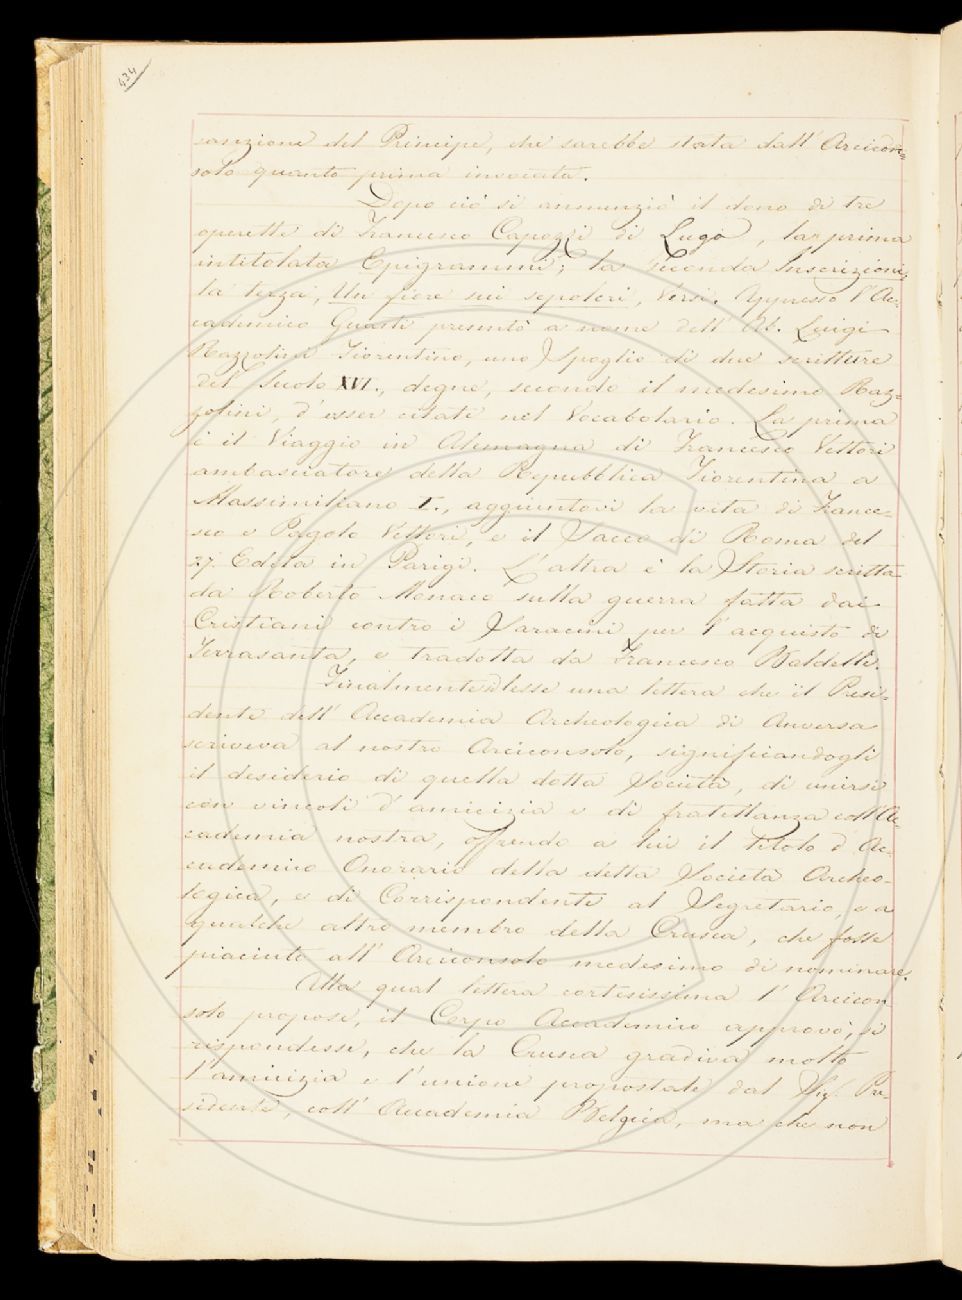 434
sanzione del Principe, che sarebbe stata dall' Arcicon=
solo quanto prima invocata.
Dopo ciò si annunziò il dono di tre
operette di Francesco Capozzi di Lugo, la prima
intitolata Epigrammi; la seconda Inscrizioni;
la terza, Un fiore sui sepolcri, Versi. Appresso l'Ac=
cademico Guasti presentò a nome dell' Ab. Luigi
Razzolini Fiorentino, uno Spoglio di due scritture
del Secolo XVI., degne, secondo il medesimo Raz=
zolini, d'esser citate nel Vocabolario. La prima
è il Viaggio in Alemagna di Francesco Vettori
ambasciatore della Repubblica Fiorentina a
Massimiliano I., aggiuntovi la vita di France=
sco e Pagolo Vettori, e il Sacco di Roma del
27. Edita in Parigi. L'altra è la Storia scritta
da Roberto Monaco sulla guerra fatta dai
Cristiani contro i Saracini per l'acquisto di
Terrasanta, e tradotta da Francesco Baldelli.
Finalmente lesse una lettera che il Presi=
dente dell' Accademia Archeologica di Anversa
scriveva al nostro Arciconsolo, significandogli
il desiderio di quella dotta Società, di unirsi
con vincoli d'amicizia e di fratellanza coll'Ac=
cademia nostra, offrendo a lui il titolo d'Ac=
cademico Onorario della detta Società Archeo-
logica, e di Corrispondente al Segretario, e a
qualche altro membro della Crusca, che fosse
piaciuto all' Arciconsolo medesimo di nominare.
Alla qual lettera cortesissima l' Arcicon
solo propose, il Corpo Accademico approvò, si
rispondesse, che la Crusca gradiva molto
l'amicizia e l'unione propostale dal Sig.r Pre=
sidente, coll' Accademia Belgica, ma che non